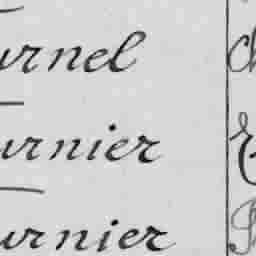 urnel
urnier
urnier